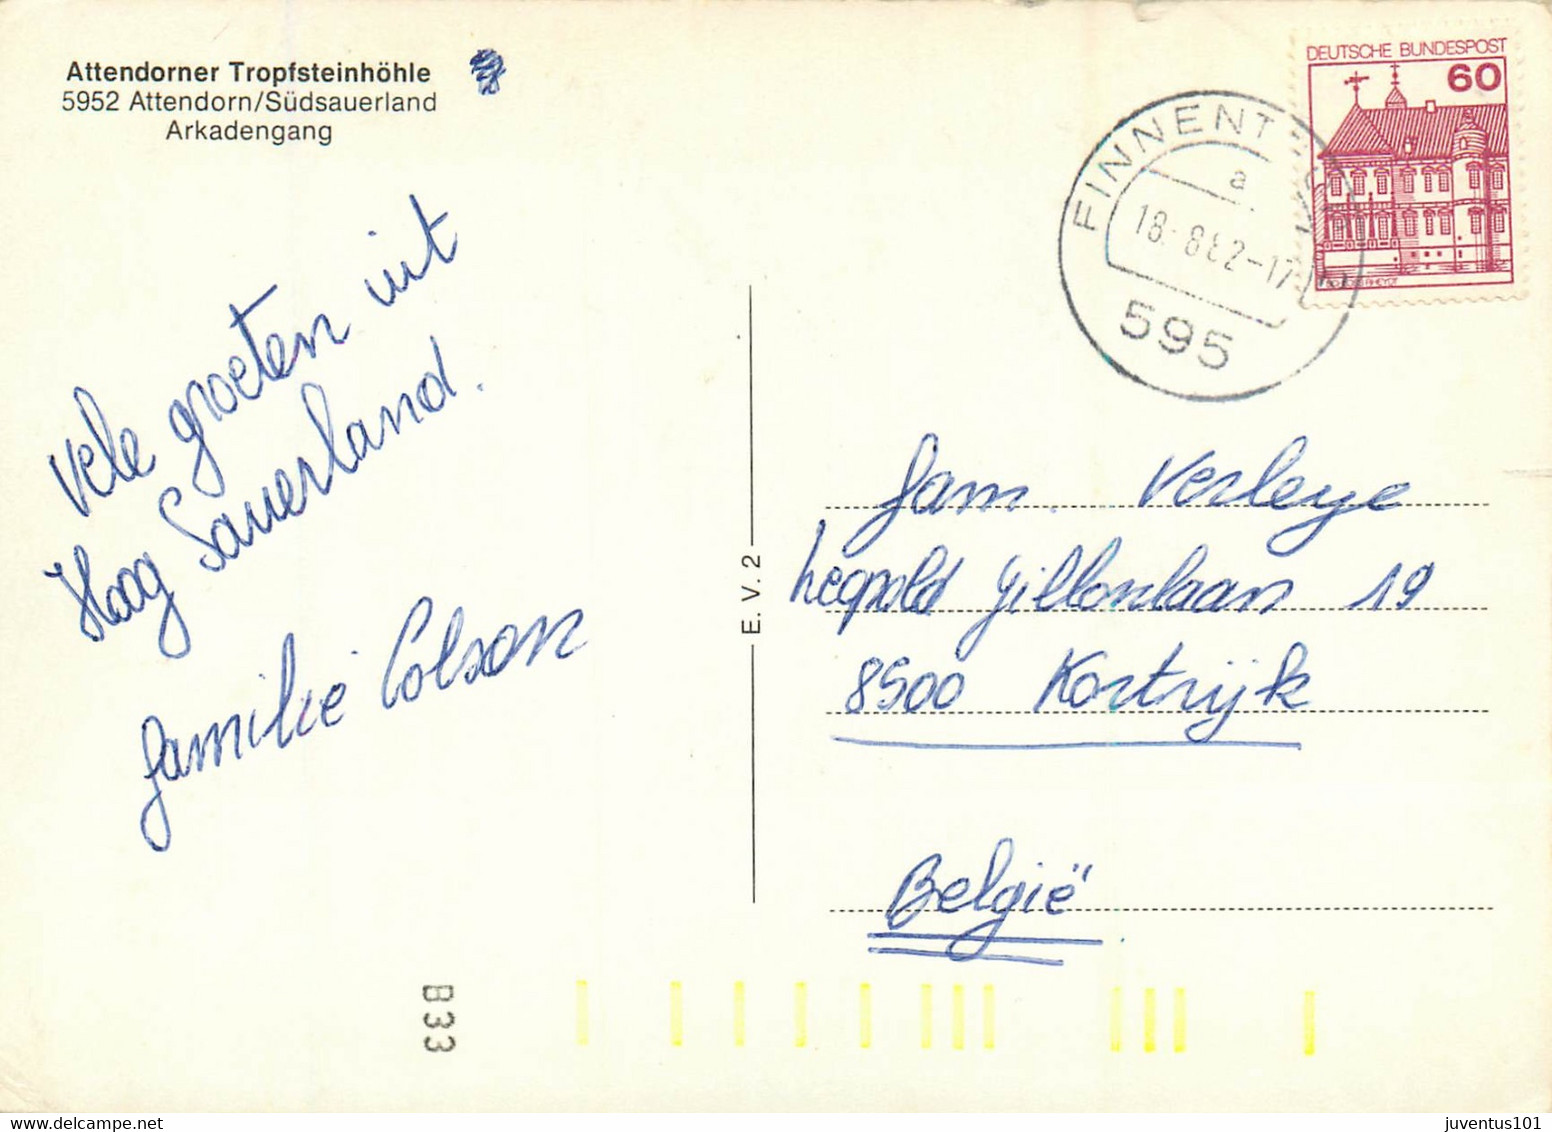 Attendorner Tropfsteinhöhle
5952 Attendorn/Südsauerland
Arkadengang
Vele groeten uit
Hoog Sauerland.
familie Colson
E. V. 2
DEUTSCHE BUNDESPOST
60
SCHLOSS RHEYDT
FINNENTROP
a
18.-8.82-17
595
fam. Verleye
Leopold Gillonlaan 19
8500 Kortrijk
België
B33
juventus101